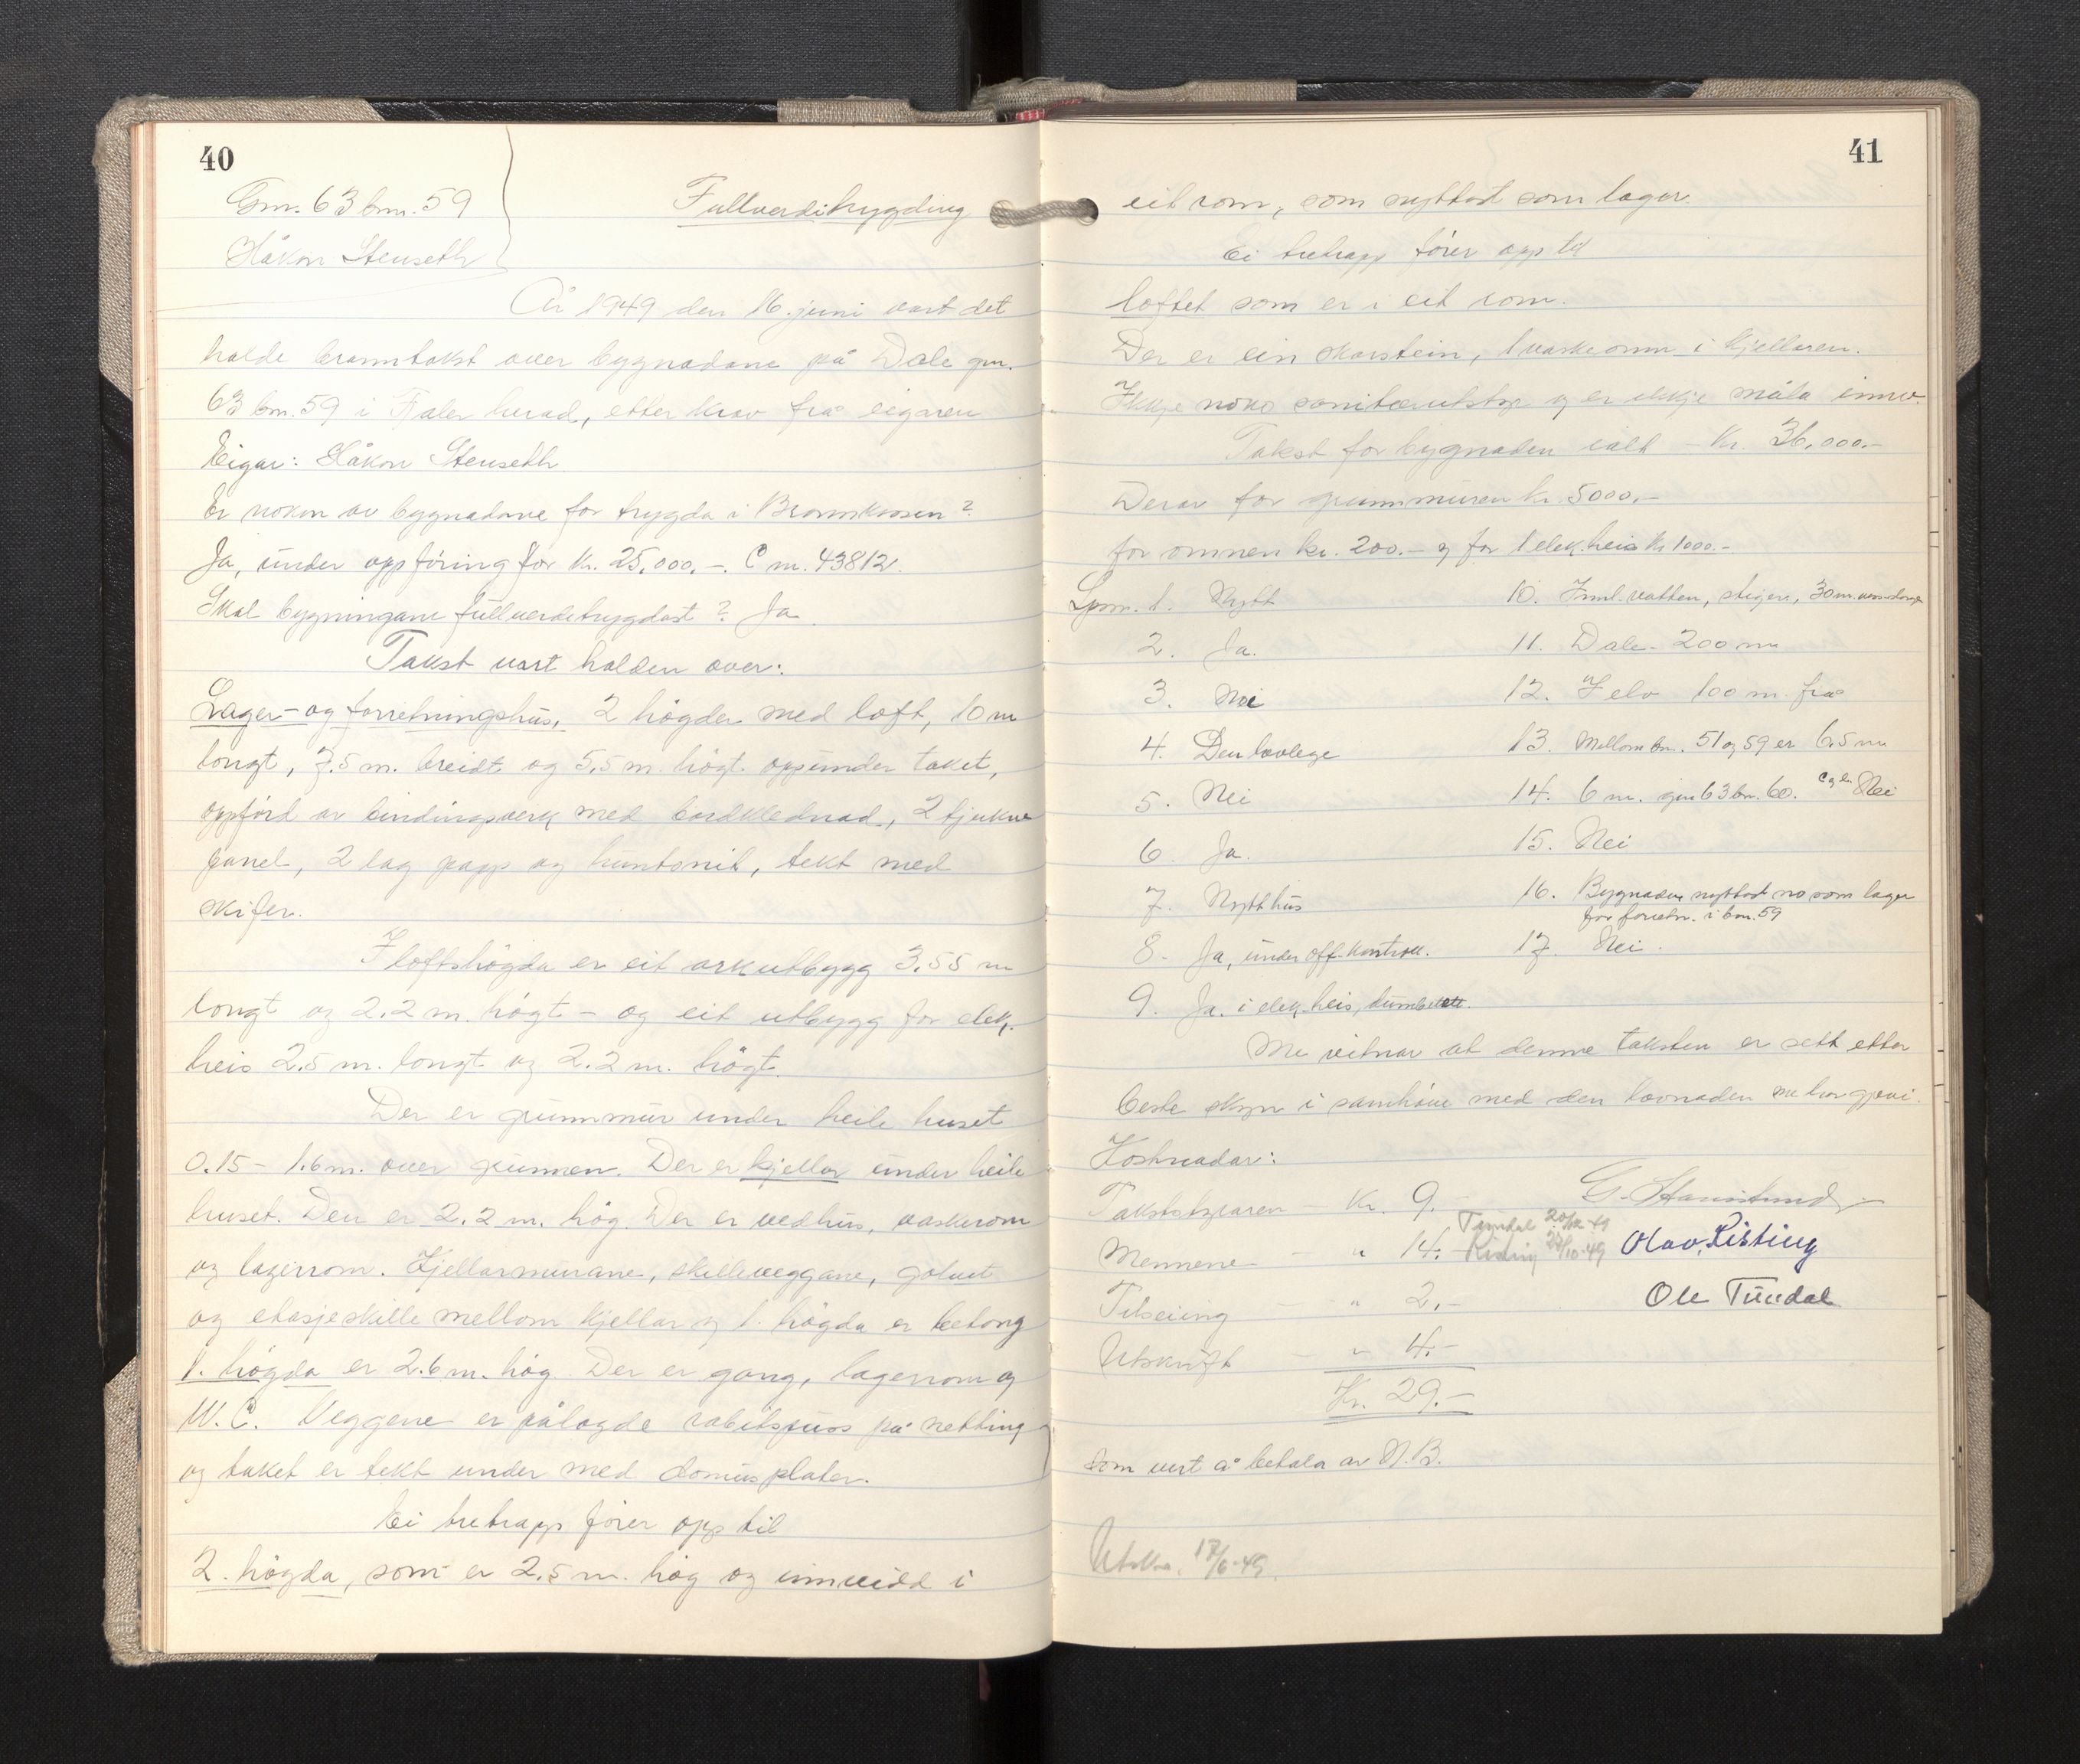 40
Gnr. 63 bnr. 59
Fullverditrygding
Håkon Stenseth
År 1949 den 16. juni vart det
halde branntakst over bygnadane på Dale gnr.
63 bnr. 59 i Fjaler herad, etter krav frå eigaren
Eigar: Håkon Stenseth.
Er nokon av bygnadane før trygda i Brannkassen?
Ja, under oppföring for kr. 25.000,-. C nr. 43812.
Skal bygningane fullverditrygdast? Ja
Takst vart halden over:
Lager- og forretningshus, 2 högder med loft, 10 m
langt, 7.5 m. breidt og 5,5 m. högt oppunder taket,
oppförd av bindingsverk med bordklednad, 2 tjukne
panel, 2 lag papp og huntonit, tekt med
skifer.
I loftshögda er eit arkutbygg 3.55 m
langt og 2.2 m. högt - og eit utbygg for elek.
heis 2.5 m. langt og 2.2 m. högt.
Der er grunnmur under heile huset
0.15 - 1.6 m. over grunnen. Der er kjellar under heile
huset. Den er 2.2 m. hög. Der er vedhus, vaskerom
og lagerrom. Kjellarmurane, skilleveggane, golvet
og etasjeskille mellom kjellar og 1. högda er betong
1. högda er 2.6 m. hög. Der er gang, lagerrom og
W.C. Veggene er pålagde rabitspuss på netting
og taket er tekt under med domusplater.
Ei tretrapp förer opp til
2. högda, som er 2.5 m. hög og innreidd i
41
eit rom, som nyttast som lager.
Ei tretrapp förer opp til
loftet som er i eit rom.
Der er ein skorstein, 1 vaskeomn i kjellaren.
Ikkje noko sanitærutstyr og er ikkje måla innv.
Takst for bygnaden ialt - Kr. 36,000.-
Derav for grunnmuren kr. 5000,-
for omnen kr. 200.- og for 1 elek. heis kr 1000.-
Spm. 1. Nytt
10. Innl. vatten, stigen, 30 m.
2. Ja.
11. Dale - 200 m
3. Nei
12. Elv 100 m. frå
4. Den lovlege
13. Mellom bnr. 51 og 59 er 6.5 m
5. Nei
14. 6 m. gnr 63 bnr. 60. Nei
6. Ja.
15. Nei
7. Nytt hus
16. Bygnaden nyttast no som lager
for forretn. i bnr. 59
8. Ja, under off. kontroll.
17. Nei.
9. Ja. i elek. heis,
Me vitnar at denne taksten er sett etter
beste skyn i samhöve med den lovnaden me har gjevi.
Kostnadar:
Takststyraren - Kr. 9.-
Mennene - " 14.-
Tundal 20/12-49
Risting 27/10-49
Olav Risting
Tilseiing - " 2,-
Ole Tundal
Utskrift - " 4.-
Kr. 29.-
som vert å betala av N.B.
Utskr. 17/6-49.